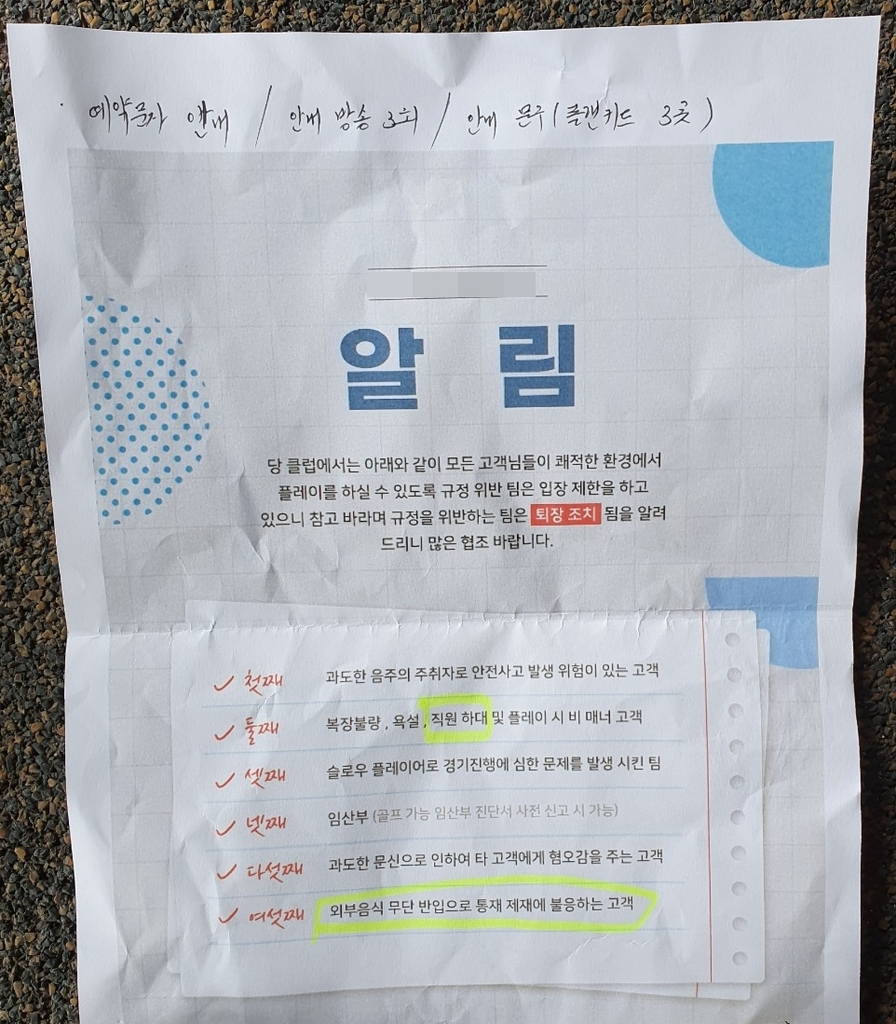 예약문자 안내 / 안내 방송 3회 / 안내 문구 (플랜카드 3곳)
알 림
당 클럽에서는 아래와 같이 모든 고객님들이 쾌적한 환경에서
플레이를 하실 수 있도록 규정 위반 팀은 입장 제한을 하고
있으니 참고 바라며 규정을 위반하는 팀은 퇴장 조치 됨을 알려
드리니 많은 협조 바랍니다.
✓ 첫째 과도한 음주의 주취자로 안전사고 발생 위험이 있는 고객
✓ 둘째 복장불량 , 욕설 , 직원 하대 및 플레이 시 비 매너 고객
✓ 셋째 슬로우 플레이어로 경기진행에 심한 문제를 발생 시킨 팀
✓ 넷째 임산부 (골프 가능 임산부 진단서 사전 신고 시 가능)
✓ 다섯째 과도한 문신으로 인하여 타 고객에게 혐오감을 주는 고객
✓ 여섯째 외부음식 무단 반입으로 통재 제재에 불응하는 고객